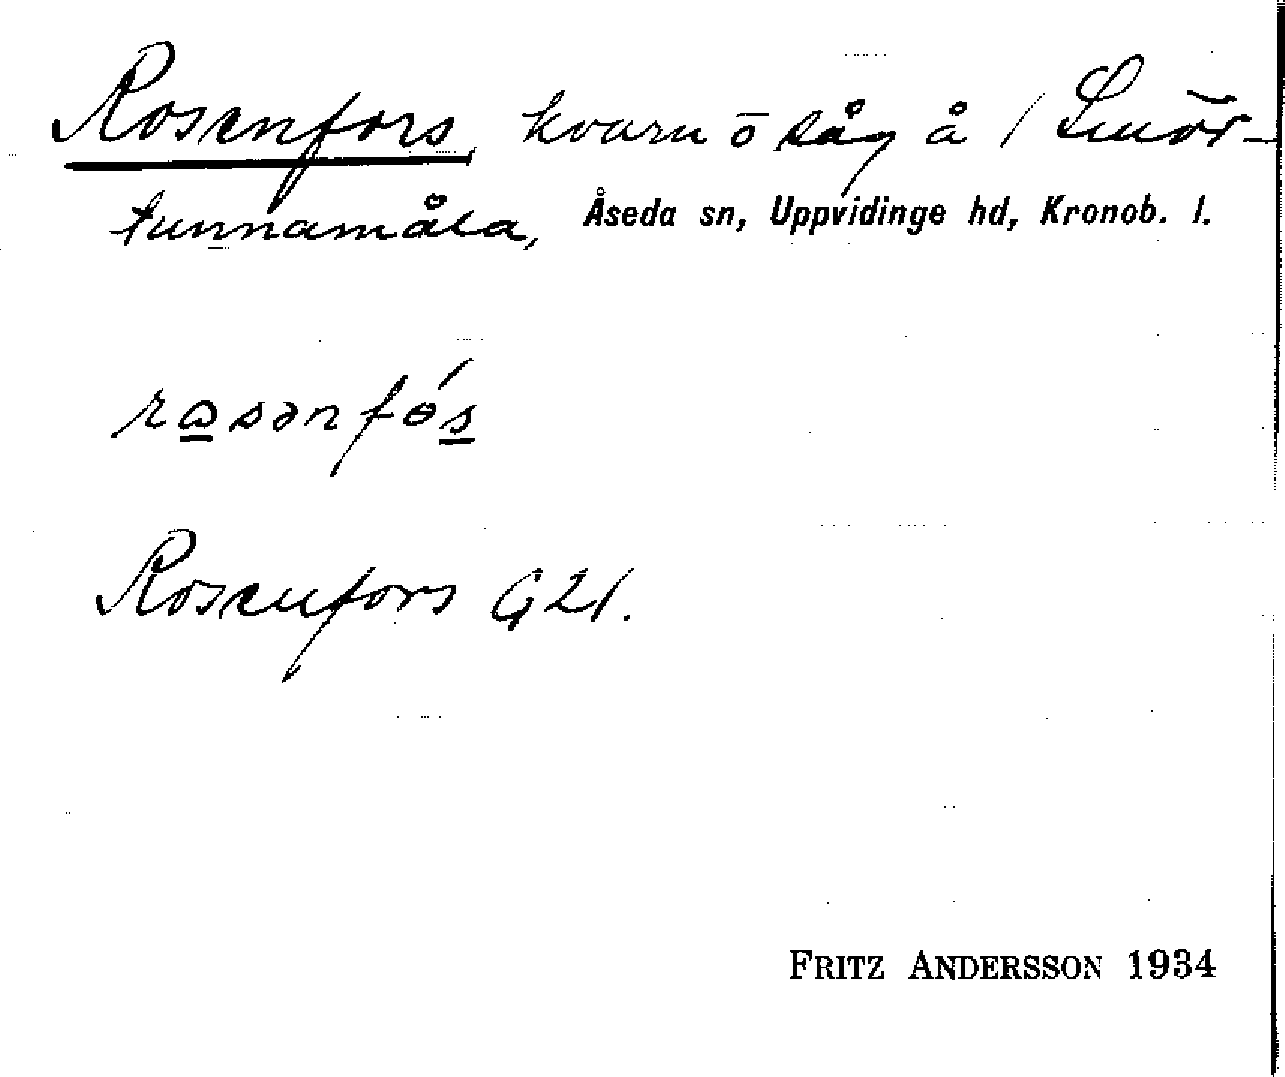 Rosenfors, kvarn ō såg å / Smör-
tunnamåla, Åseda sn, Uppvidinge hd, Kronob. l.
Rosenfors G21.
FRITZ ANDERSSON 1934